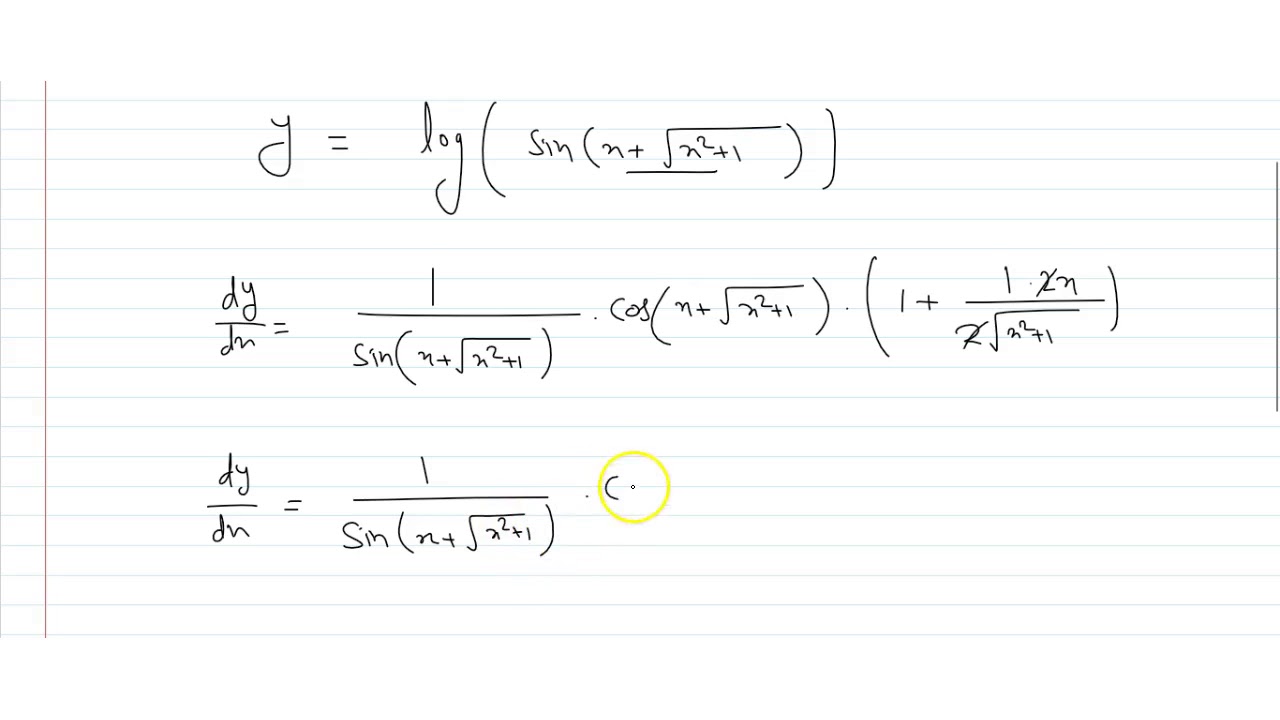 y = log(sin(x+√(x²+1)))
dy/dx = 1/sin(x+√(x²+1)) . cos(x+√(x²+1)) . (1 + 1.2x/2√(x²+1))
dy/dx = 1/sin(x+√(x²+1)) . c